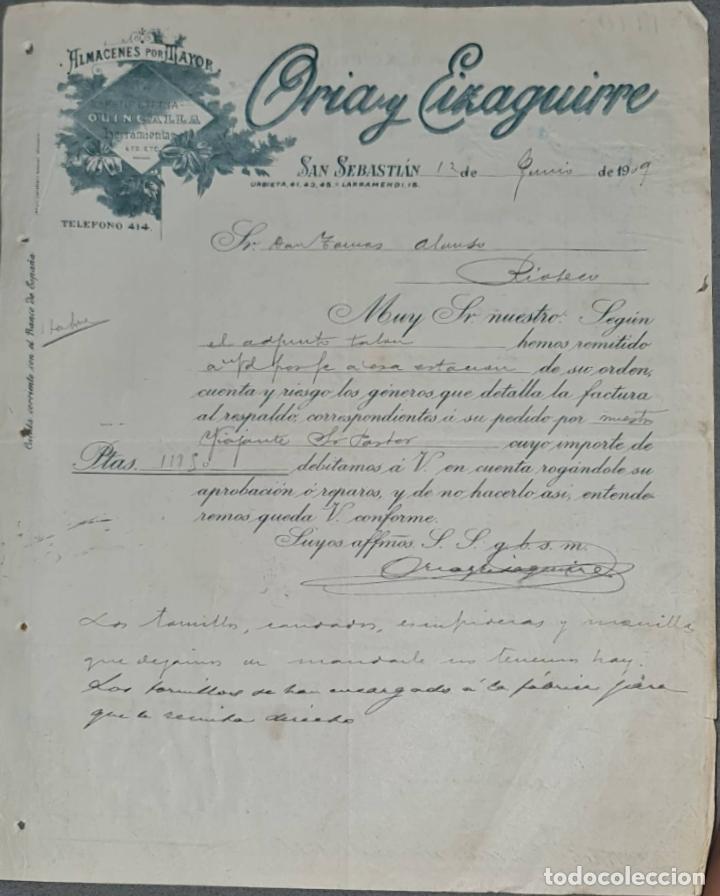 ALMACENES POR MAYOR
QUINCALLA
Herramientas
ETC. ETC.
TELEFONO 414.
Oria y Eizaguirre
SAN SEBASTIÁN 12 de Junio de 1909
URBIETA, 41, 43, 45. - LARRAMENDI, 15.
Cuenta corriente con el Banco de España
Sr. Don Tomas Alonso
Rioseco
Muy Sr. nuestro: Según
el adjunto talon hemos remitido
a esa estacion de su orden,
cuenta y riesgo los géneros que detalla la factura
al respaldo, correspondientes á su pedido por nuestro
Viajante Sr Pastor cuyo importe de
Ptas. debitamos á V. en cuenta rogándole su
aprobación ó reparos, y de no hacerlo asi, entende-
remos queda V. conforme.
Suyos affmos. S. S. q. b. s. m.
Oria y Eizaguirre
Los tornillos, candados, escupideras y manillas
que dejamos de mandarle no tenemos hoy.
Los tornillos se han encargado á la fábrica para
que le remita derecho
todocoleccion
todocoleccion.net